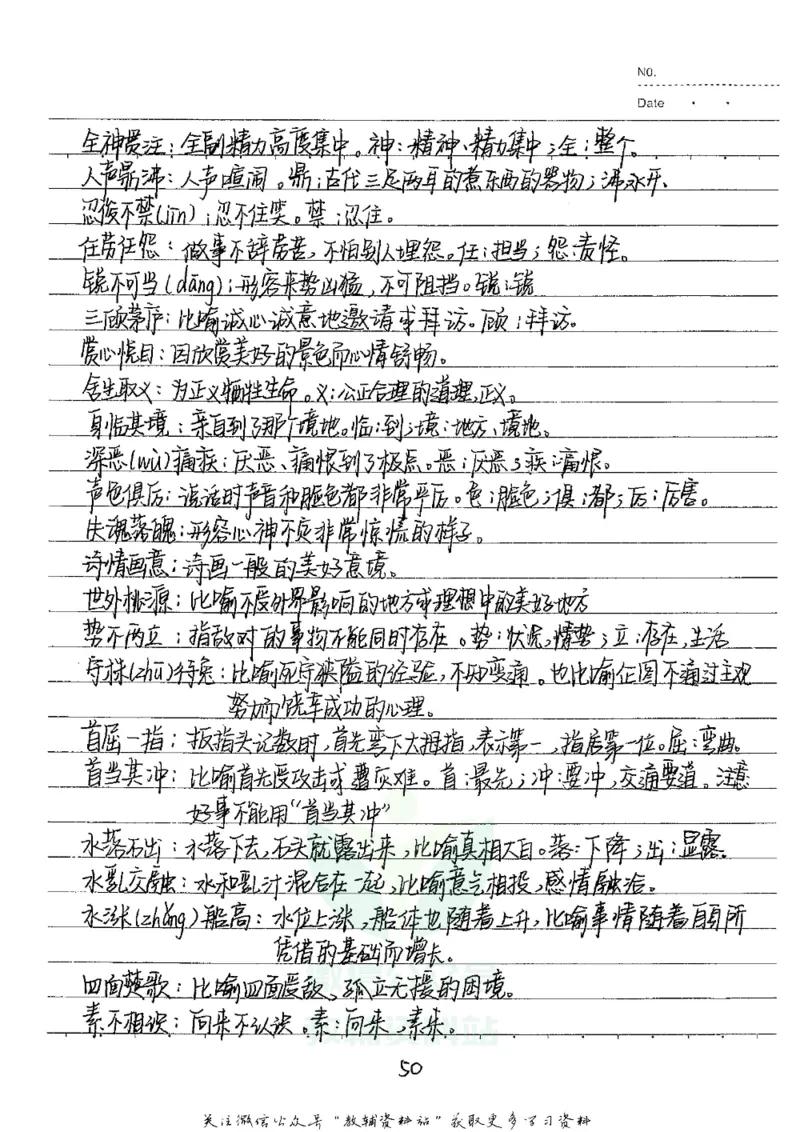 NO.
Date
全神贯注：全副精力高度集中。神：精神、精力集中；全：整个。
人声鼎沸：人声喧闹。鼎：古代三足两耳的煮东西的器物；沸：水开。
忍俊不禁(jīn)：忍不住笑。禁：忍住。
任劳任怨：做事不辞劳苦，不怕别人埋怨。任：担当；怨：责怪。
锐不可当(dāng)：形容来势凶猛，不可阻挡。锐：锐
三顾茅庐：比喻诚心诚意地邀请或拜访。顾：拜访。
赏心悦目：因欣赏美好的景色而心情舒畅。
舍生取义：为正义牺牲生命。义：公正合理的道理，正义。
身临其境：亲自到了那个境地。临：到；境：地方、境地。
深恶(wù)痛疾：厌恶、痛恨到了极点。恶：厌恶；疾：痛恨。
声色俱厉：说话时声音和脸色都非常严厉。色：脸色；俱：都；厉：厉害。
失魂落魄：形容心神不定非常惊慌的样子。
诗情画意：诗画一般的美好意境。
世外桃源：比喻不受外界影响的地方或理想中的美好地方
势不两立：指敌对的事物不能同时存在。势：状况，情势；立：存在，生活
守株(zhū)待兔：比喻死守狭隘的经验，不知变通。也比喻企图不通过主观
努力而侥幸成功的心理。
首屈一指：扳指头记数时，首先弯下大拇指，表示第一，指居第一位。屈：弯曲。
首当其冲：比喻首先受攻击或遭灾难。首：最先；冲：要冲，交通要道。注意
好事不能用“首当其冲”
水落石出：水落下去，石头就露出来，比喻真相大白。落：下降；出：显露。
水乳交融：水和乳汁混合在一起，比喻意气相投，感情融洽。
水涨(zhǎng)船高：水位上涨，船体也随着上升，比喻事情随着自身所
凭借的基础而增长。
四面楚歌：比喻四面受敌、孤立无援的困境。
素不相识：向来不认识。素：向来，素来。
50
关注微信公众号“教辅资料站”获取更多学习资料